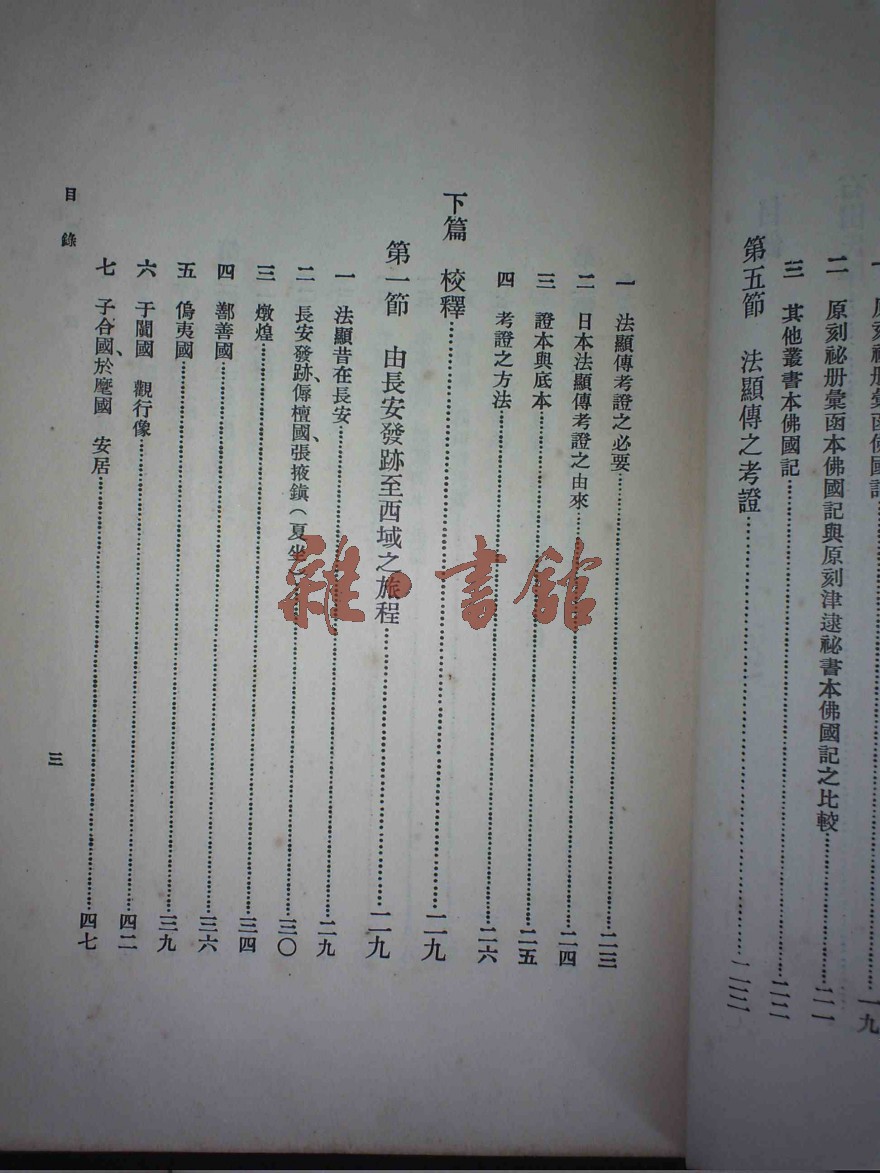 原刻祕册彙函本佛國記……一九
二 原刻祕册彙函本佛國記與原刻津逮祕書本佛國記之比較……二一
三 其他叢書本佛國記……二二
第五節 法顯傳之考證……二三
一 法顯傳考證之必要……二三
二 日本法顯傳考證之由來……二四
三 證本與底本……二五
四 考證之方法……二六
下篇 校釋……二九
第一節 由長安發跡至西域之旅程……二九
一 法顯昔在長安……二九
二 長安發跡、傉檀國、張掖鎭(夏坐)……三〇
三 燉煌……三四
四 鄯善國……三六
五 僞夷國……三九
六 于闐國 觀行像……四二
七 子合國、於麾國 安居……四七
目錄
三
雜·書館